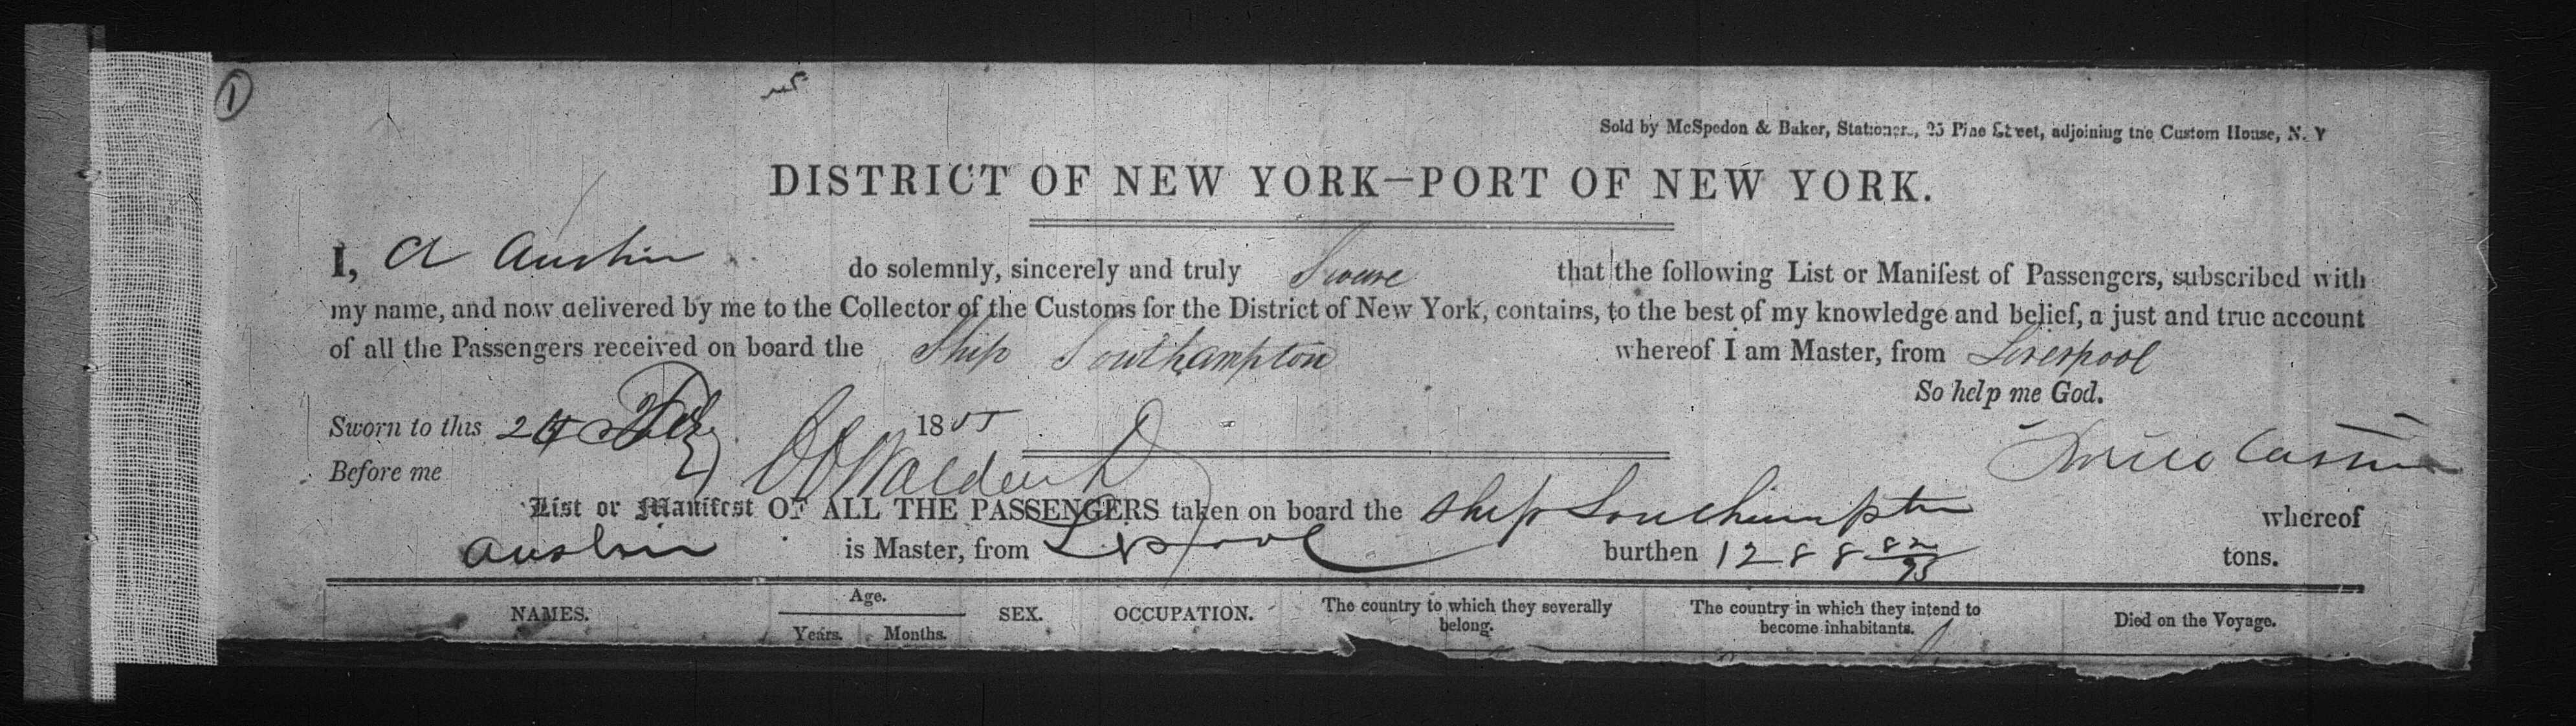 1
Sold by McSpedon & Baker, Stationers, 25 Pine Street, adjoining the Custom House, N. Y
DISTRICT OF NEW YORK—PORT OF NEW YORK.
I, A Austin do solemnly, sincerely and truly Sweare that the following List or Manifest of Passengers, subscribed with
my name, and now delivered by me to the Collector of the Customs for the District of New York, contains, to the best of my knowledge and belief, a just and true account
of all the Passengers received on board the Ship Southampton whereof I am Master, from Liverpool
So help me God.
Sworn to this 24 1855
Before me
List or Manifest OF ALL THE PASSENGERS taken on board the Ship Southampton whereof
Austin is Master, from Lpool burthen 1288 82/95 tons.
NAMES. Age. SEX. OCCUPATION. The country to which they severally belong. The country in which they intend to become inhabitants. Died on the Voyage.
Years. Months.